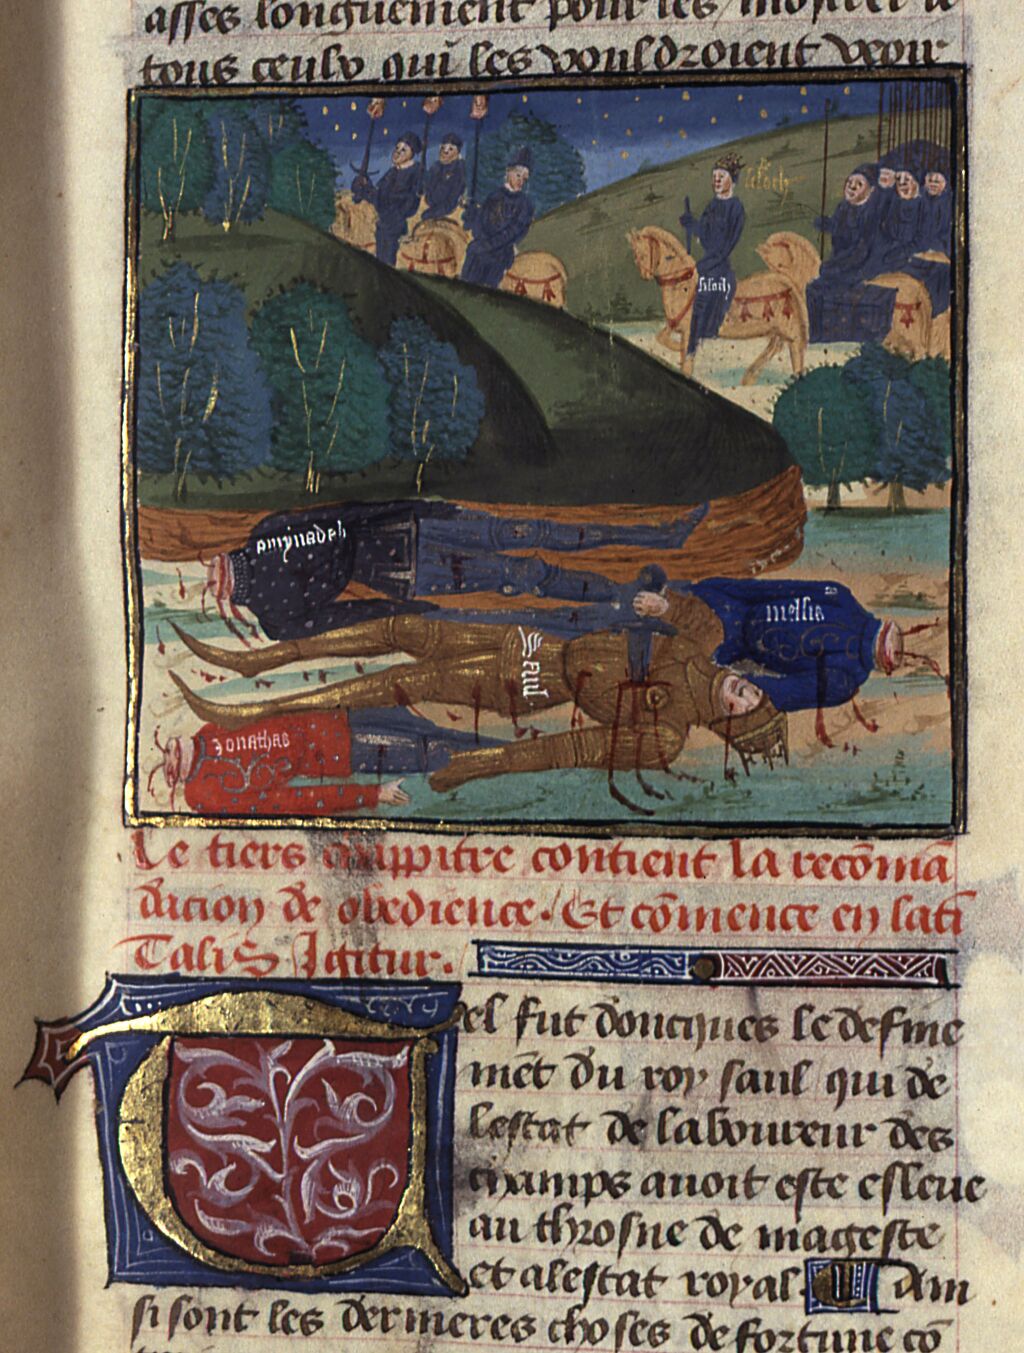 asses longuement pour les monstrer a
tous ceulx qui les vouldroient veoir
siloch
siloch
amynadab
melsis
saul
Jonathas
Le tiers chappitre contient la recōmā
dacion de obedience. Et cōmence en lati
Talis Igitur.
Tel fut doncques le define
mēt du roy saul qui de
lestat de laboureur des
champs auoit este esleue
au throsne de mageste
et alestat royal. Am
si sont les derrieres choses de fortune cō